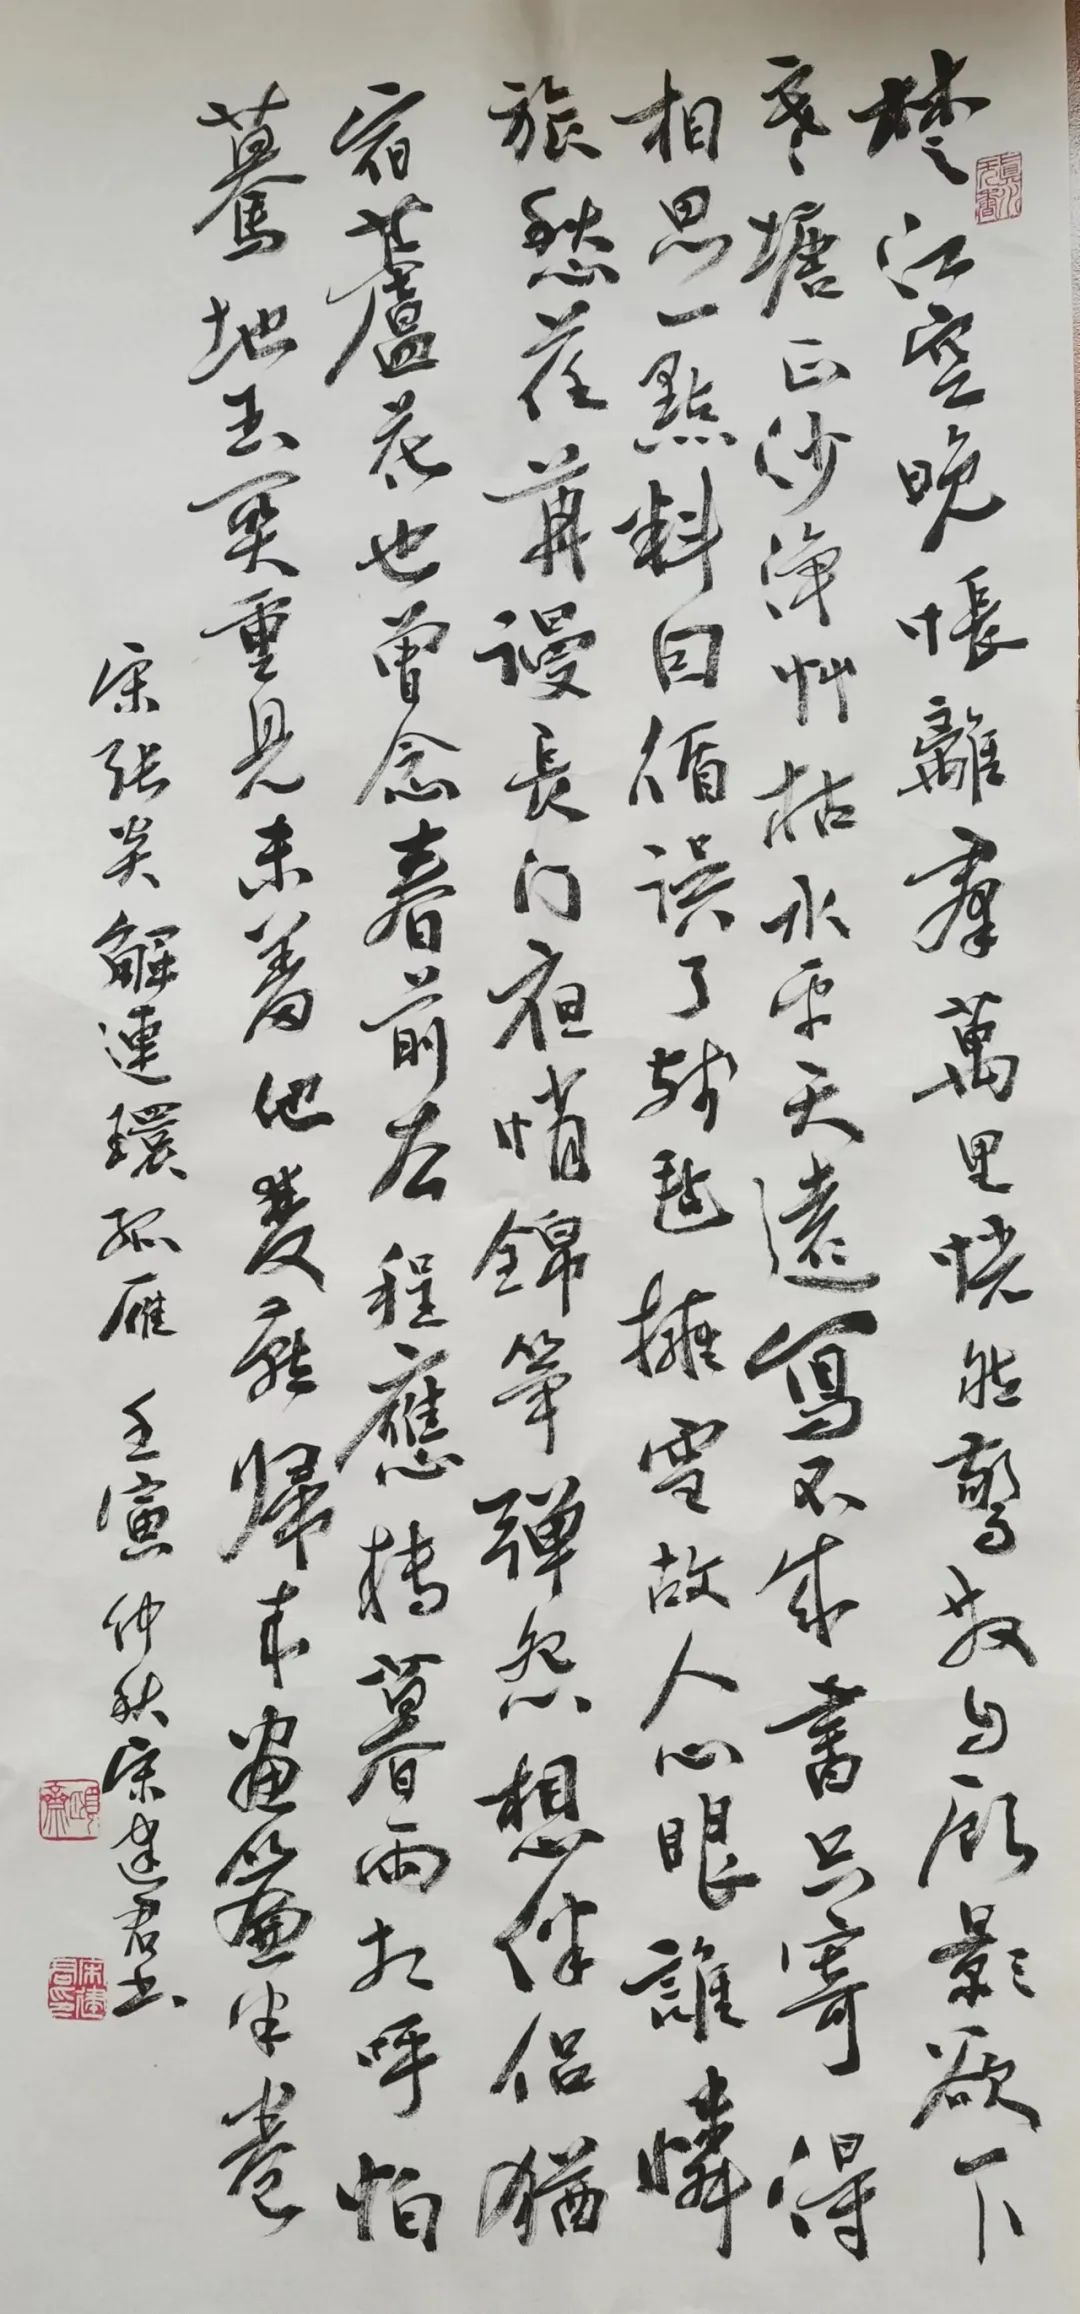 楚江空晚帳離羣萬里恍然驚散自顧影欲下
寒塘正沙淨艸枯水平天遠寫不成書只寄得
相思一點料因循誤了殘氈擁雪故人心眼誰憐
旅愁荏苒謾長门夜悄錦筝弹怨想伴侣猶
宿蘆花也曾念春前去程應轉暮雨相呼怕
驀地玉関重見未羞他雙燕歸來畫簾半卷
宋張炎解連環孤雁 壬寅仲秋宋建君书